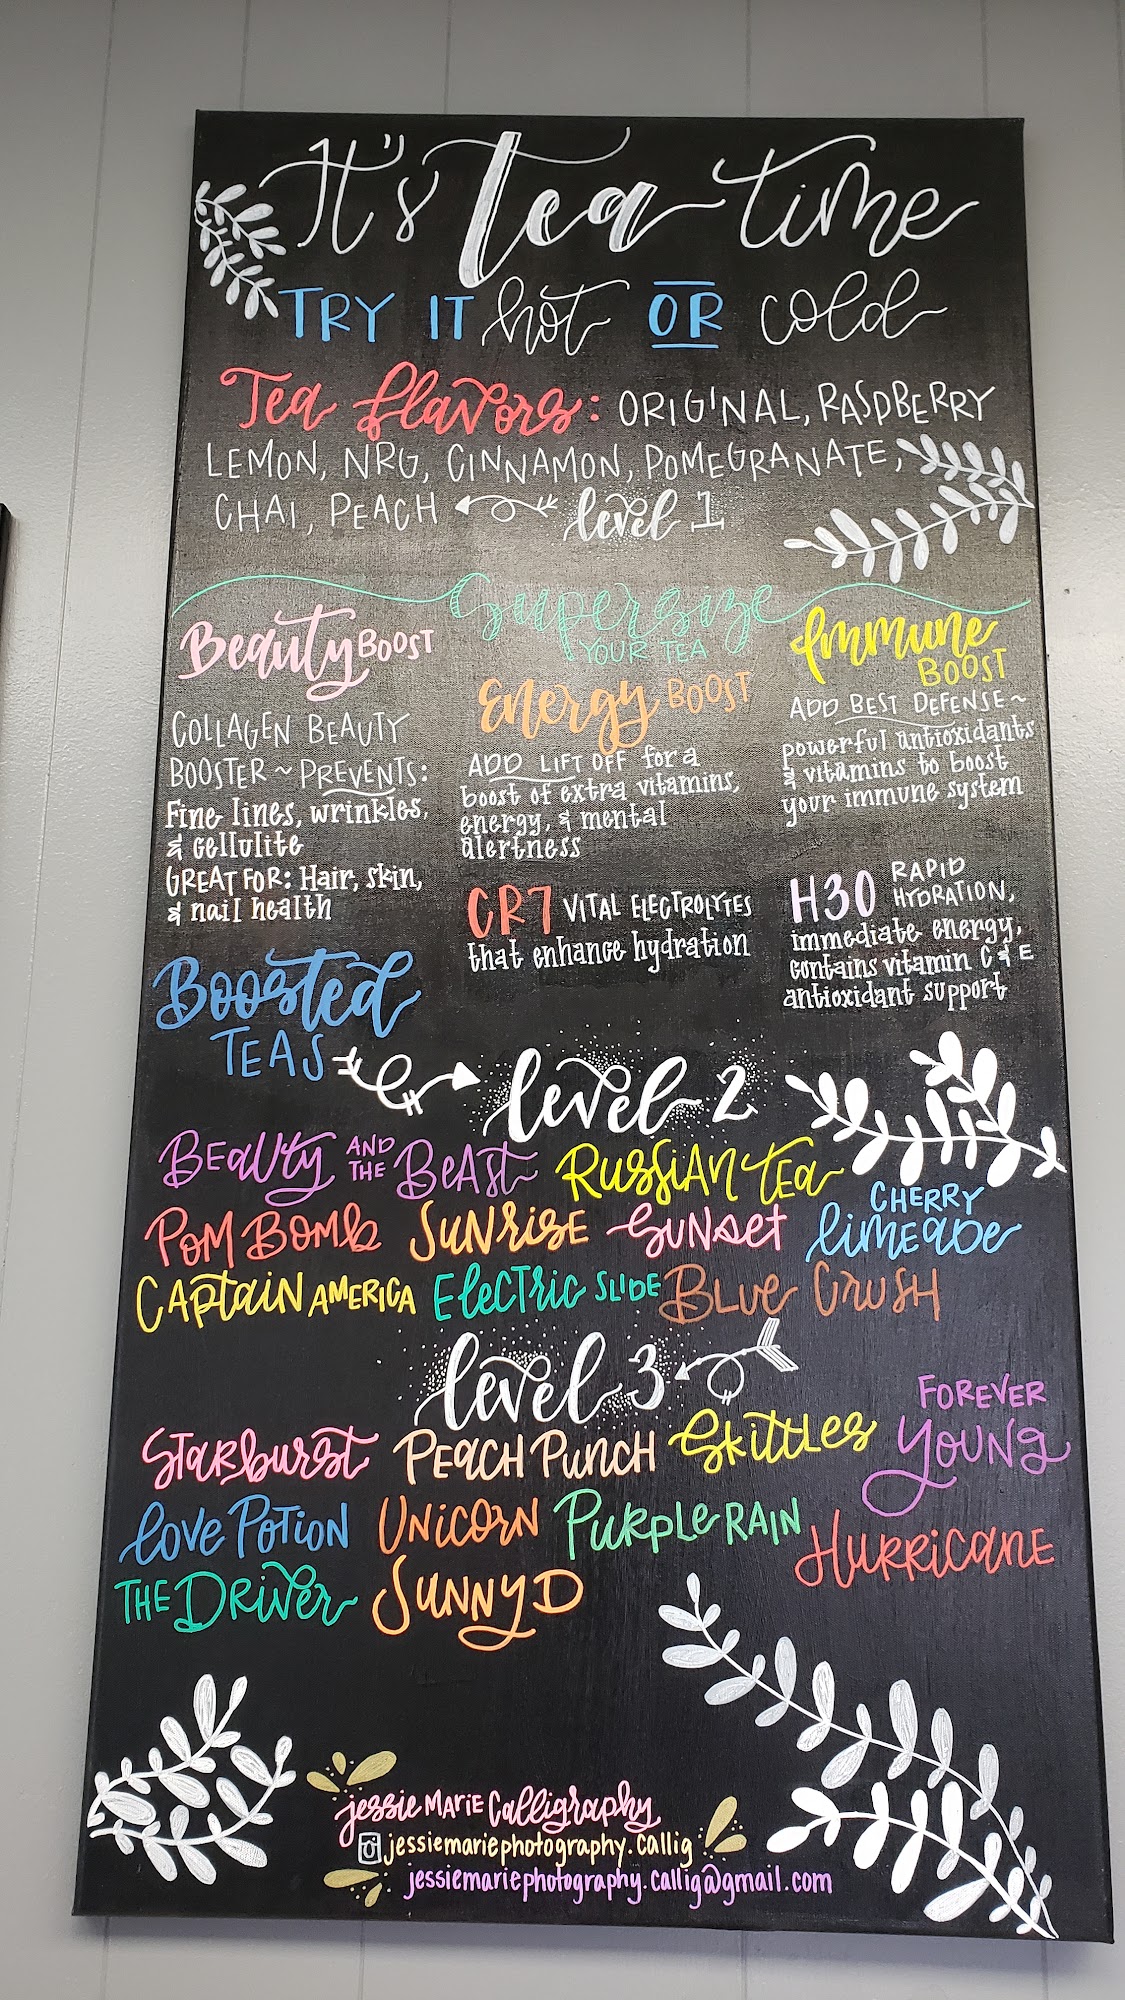 It's tea time
TRY IT hot OR cold
Tea flavors: ORIGINAL, RASPBERRY
LEMON, NRG, CINNAMON, POMEGRANATE,
CHAI, PEACH level 1
Supersize
YOUR TEA
Beauty BOOST
COLLAGEN BEAUTY
BOOSTER ~ PREVENTS:
Fine lines, wrinkles,
& cellulite
GREAT FOR: Hair, skin,
& nail health
Energy BOOST
ADD LIFT OFF for a
boost of extra vitamins,
energy, & mental
alertness
CR7 VITAL ELECTROLYTES
that enhance hydration
Immune
BOOST
ADD BEST DEFENSE ~
powerful antioxidants
& vitamins to boost
your immune system
H30 RAPID
HYDRATION,
immediate energy,
contains vitamin C & E
antioxidant support
Boosted
TEAS
level 2
BEAUTY AND THE BEAST RUSSIAN TEA
POM BOMB SUNRISE SUNSET CHERRY limeade
CAPTAIN AMERICA ELECTRIC SLIDE BLUE CRUSH
level 3
STARBURST PEACH PUNCH SKITTLES FOREVER YOUNG
LOVE POTION UNICORN PURPLE RAIN HURRICANE
THE DRIVER SUNNY D
jessie MARIE Calligraphy
jessiemariephotography.callig
jessiemariephotography.callig@gmail.com